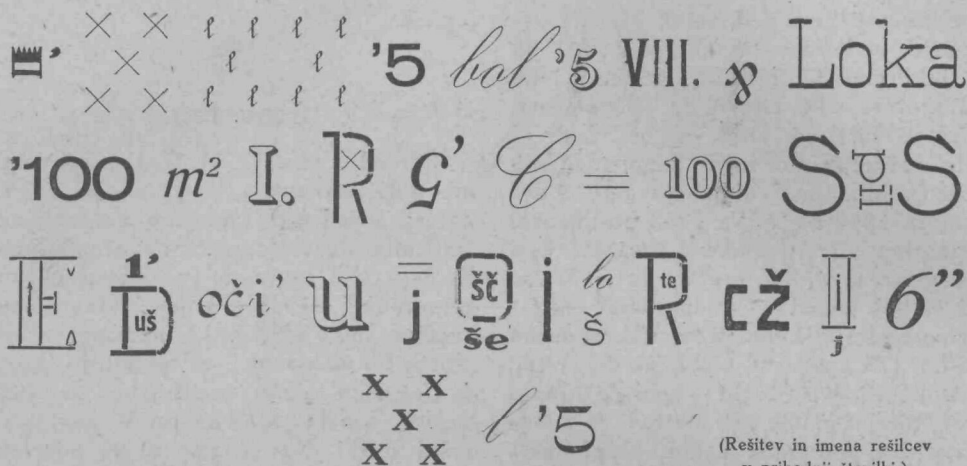 ’ × × ℓ ℓ ℓ ℓ × ℓ ℓ × × ℓ ℓ ℓ ℓ ’5 bol ’5 VIII. Loka
’100 m² I. R × G’ C = 100 S pil S
1’ D uš oči’ u = j šč še i lo Š R te CŽ I i j 6”
x x x x x l ’5
(Rešitev in imena rešilcev